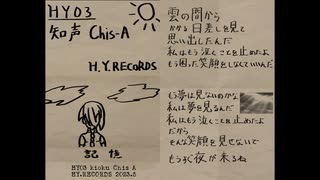 HY03
知声 Chis-A
H.Y.RECORDS
記憶
HY03 kioku Chis A
HY.RECORDS 2023.5
雲の間から
かかる日差しを見て
思い出したんだ
私はもう泣くことを止めたよ
もう困った笑顔をしなくていいんだ
もう夢は見ないのかな
私は夢を見るんだ
私はもう泣くことを止めたよ
だから
そんな笑顔を見せないで
もうすぐ夜が来るね